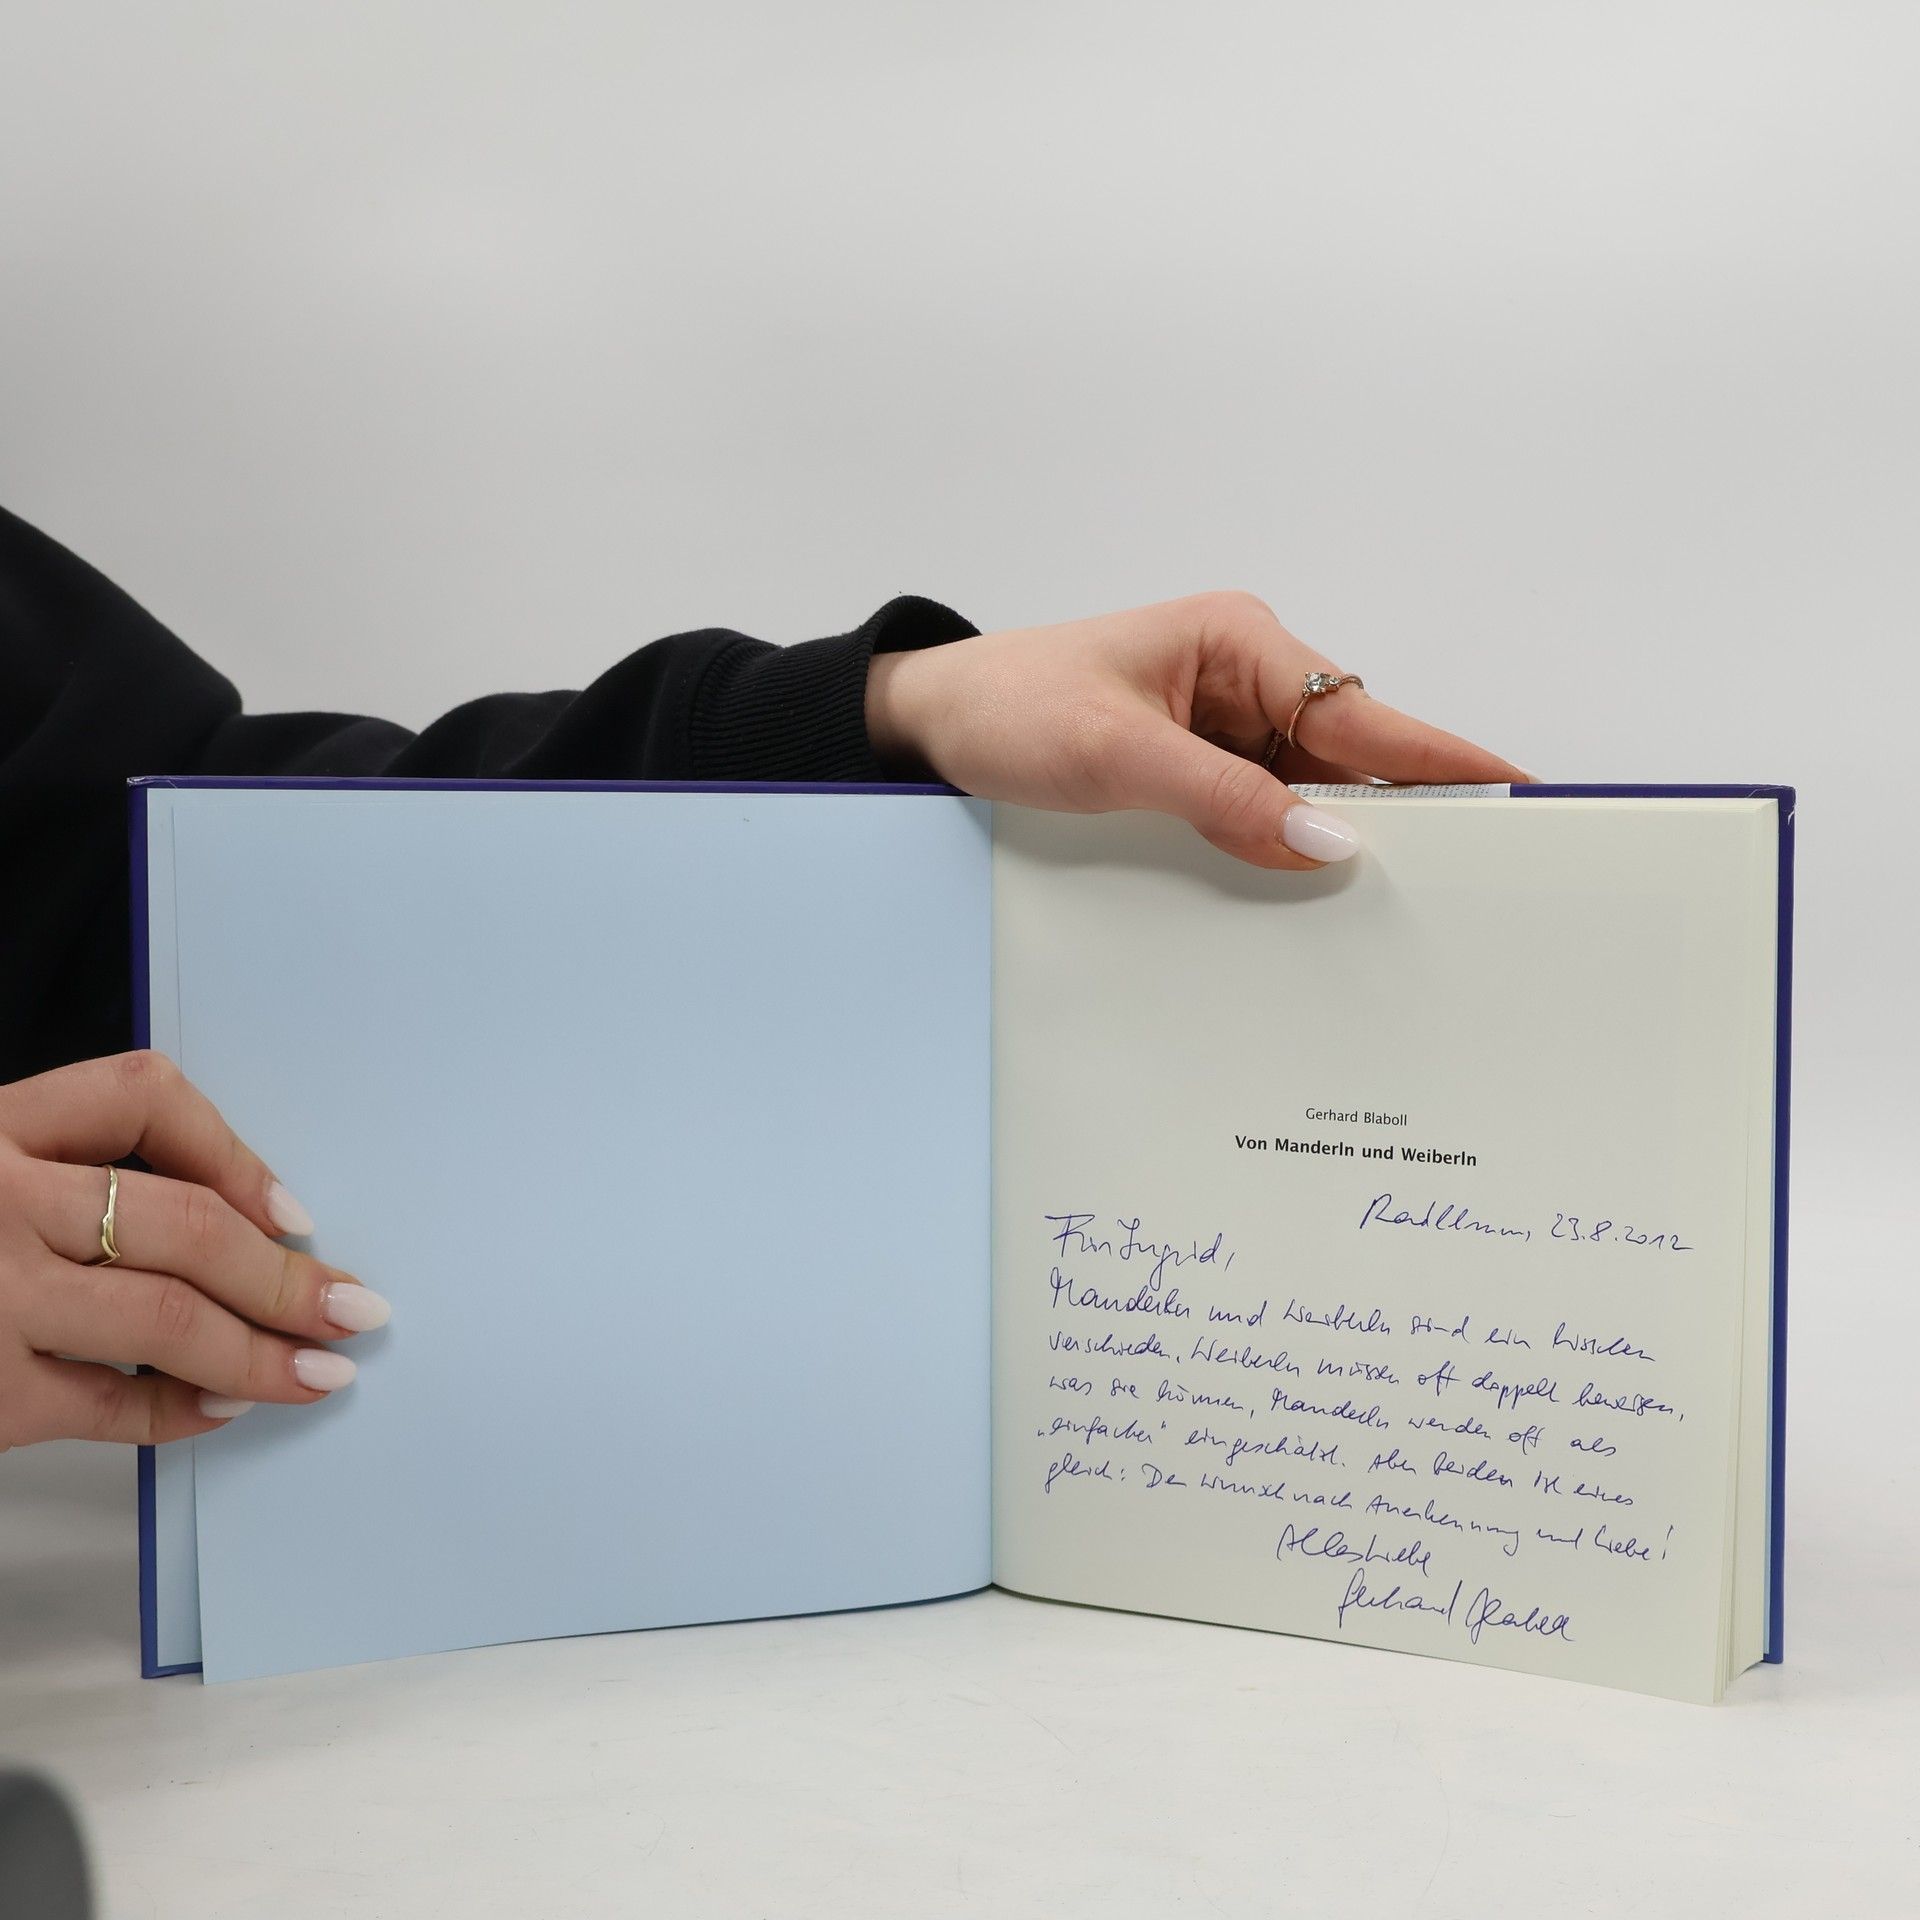 Gerhard Blaboll
Von Manderln und Weiberln
23.8.2012
Für Ingrid,
Manderln und Weiberln sind ein bisschen
verschieden. Weiberln müssen oft doppelt beweisen,
was sie können, Manderln werden oft als
„einfacher“ eingeschätzt. Aber beiden ist eines
gleich: Der Wunsch nach Anerkennung und Liebe!
Alles Liebe
Gerhard Blaboll